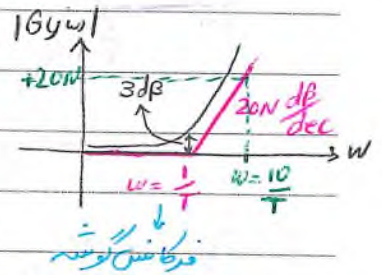 |G(jω)|
+20N
3dβ
20N dβ/dec
ω
ω = 1/T
ω = 10/T
فرکانس گوشه